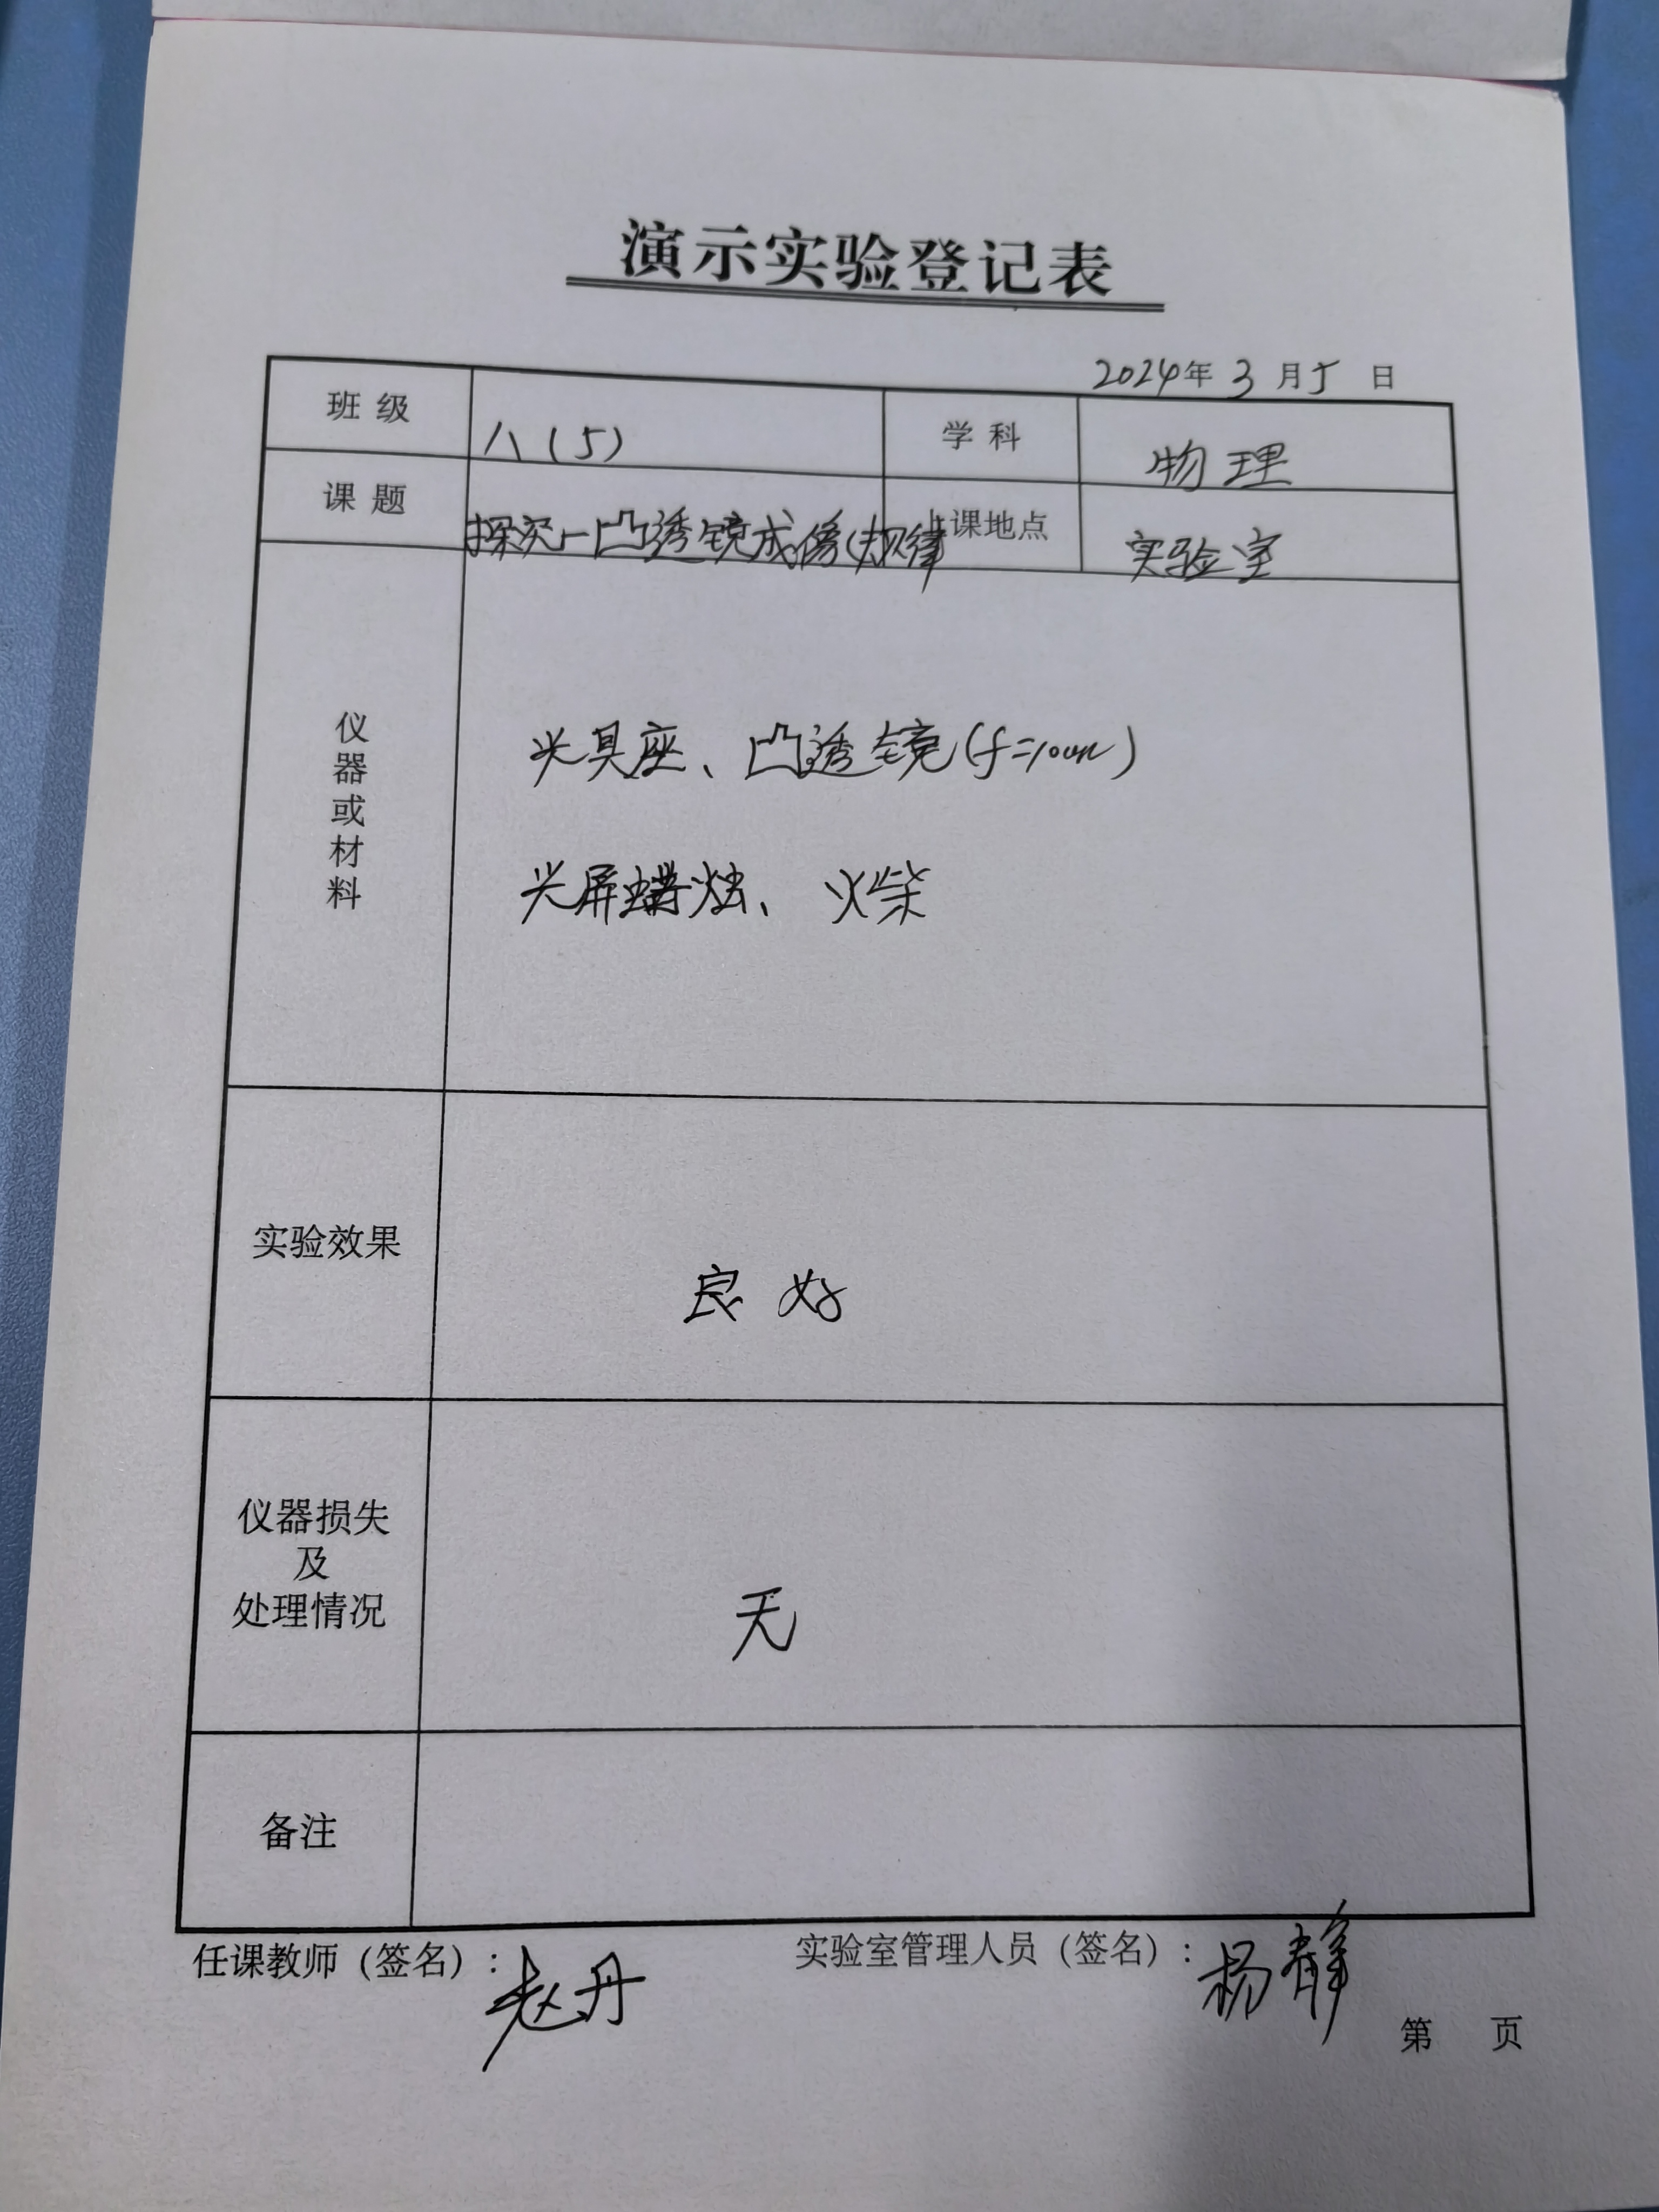 演示实验登记表
2024年 3 月 5 日
班 级 八(5) 学 科 物理
课 题 探究凸透镜成像规律 上课地点 实验室
仪器或材料 光具座、凸透镜(f=10cm)
光屏蜡烛、火柴
实验效果 良好
仪器损失
及
处理情况 无
备注
任课教师(签名): 赵丹 实验室管理人员(签名): 杨静
第 页